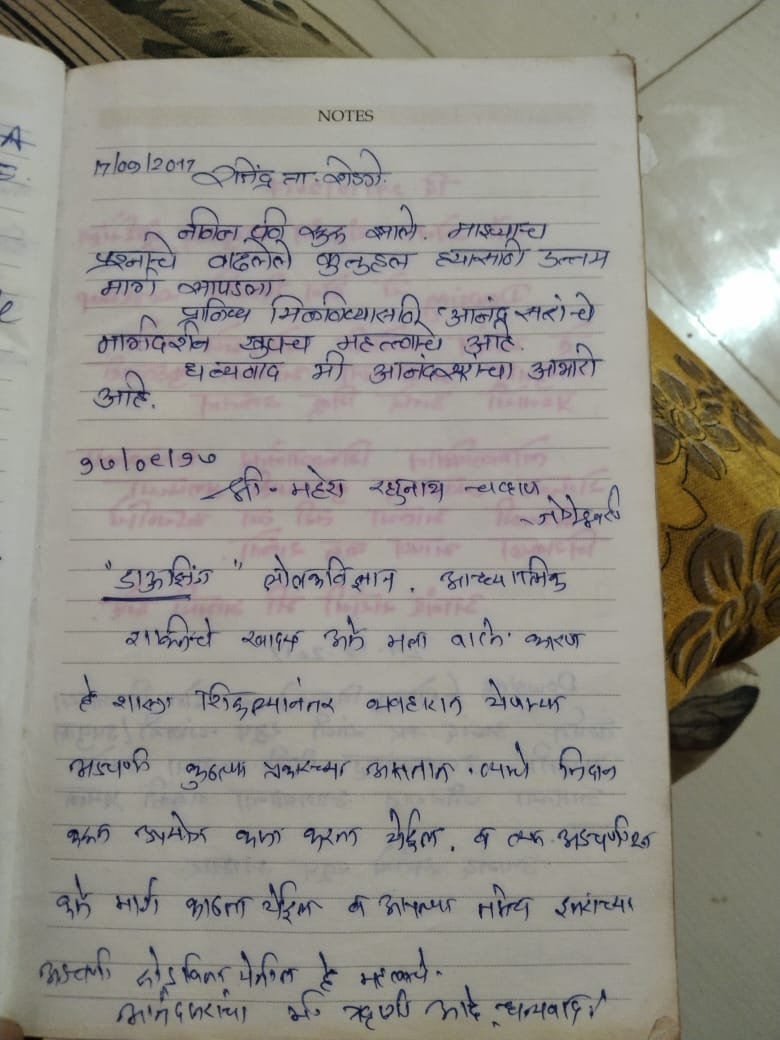 NOTES
17/09/2017
राजेंद्र ना.
नविन सुरु झाले. माझ्याच
प्रश्नांचे वाढलेले कुतुहल ह्यासाठी उत्तम
मार्ग सापडला
प्राविण्य मिळविण्यासाठी आनंद सरांचे
मार्गदर्शन खुपच महत्वाचे आहे.
धन्यवाद मी आनंदसरांचा आभारी
आहे.
१७/०९/१७
श्री - महेश रघुनाथ चव्हाण
जोगेश्वरी
"डाऊझिंग" लोलकविज्ञान. आध्यात्मिक
शक्तिचे आहे मला वाटते. कारण
हे शास्त्र शिकल्यानंतर व्यवहारात येणाऱ्या
अडचणी कुठल्या प्रकारच्या असतात. त्याचे निदान
करून उपयोग करता येईल. व त्या
मार्ग काढता येईल व आपल्या तसेच इतरांच्या
अडचणी सोडविता येतील हे महत्वाचे.
आनंदसरांचा मी ऋणी आहे, धन्यवाद!